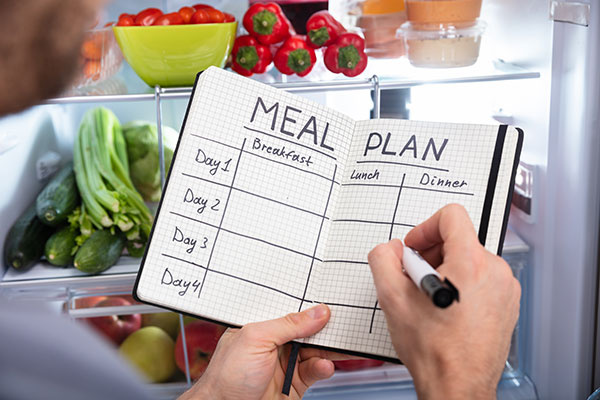 MEAL PLAN
Breakfast Lunch Dinner
Day 1
Day 2
Day 3
Day 4